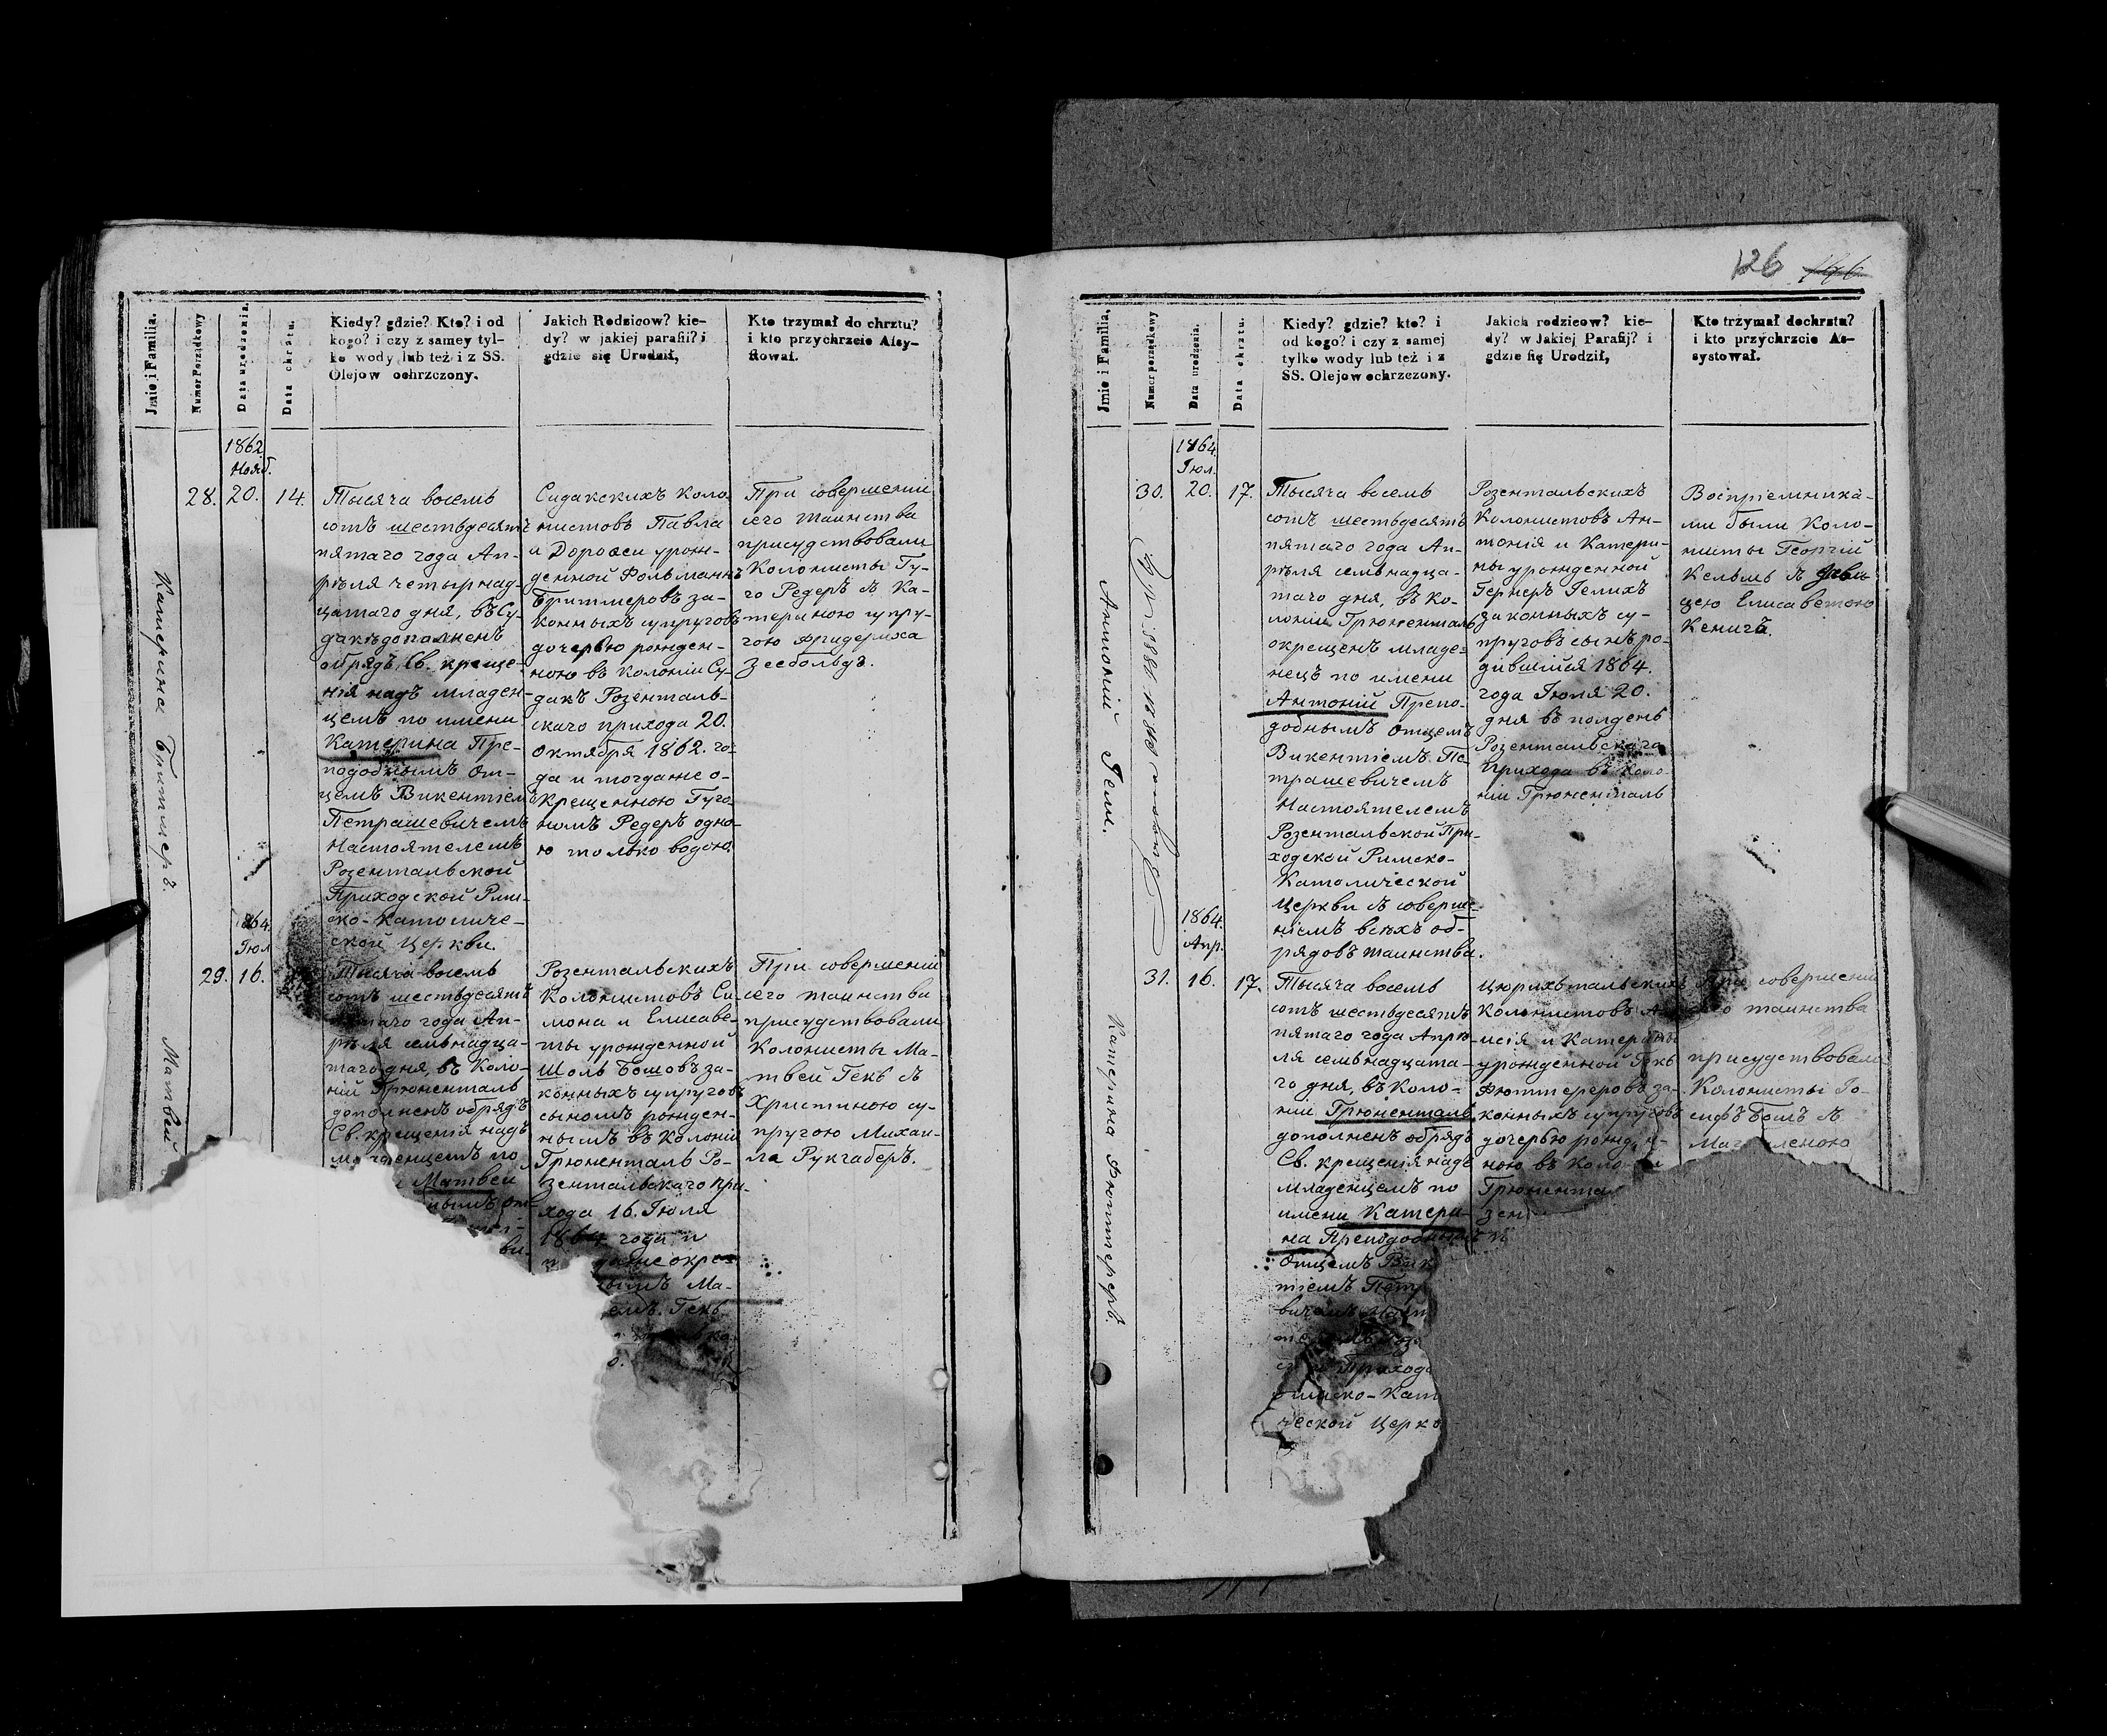 126
Jmie i Familia.
Numer Porządkowy
Data urodzenia.
Data chrztu.
Kiedy? gdzie? Kto? i od
kogo? i czy z samey tyl-
ko wody lub też i z SS.
Olejow ochrzczony.
Jakich Rodzicow? kie-
dy? w jakiej parafii? i
gdzie się Urodził,
Kto trzymał do chrztu?
i kto przychrzcie Assy-
stował.
Катерина Битмеръ.
1862
Нояб.
28. 20. 14.
Тысяча восемь
сотъ шестьдесятъ
пятаго года Ап-
рѣля четырнад-
цатаго дня, въ Су-
дакѣ дополненъ
обрядъ Св. креще-
нія надъ младен-
цемъ по имени
Катерина Пре-
подобнымъ От-
цемъ Викентіемъ
Петрашевичемъ
Настоятелемъ
Розентальской
Приходской Рим-
ско-Католиче-
ской Церкви.
Судакскихъ Коло-
нистовъ Павла
и Доротеи урож-
денной Фольманъ
Битмеровъ за-
конныхъ супруговъ
дочерью рожден-
ною въ Колоніи Су-
дакъ Розенталь-
скаго прихода 20.
Октября 1862. го-
да и тогда же о-
крещенною Гуго-
номъ Редеръ одно-
ю только водою.
При совершеніи
сего таинства
присудствовали
Колонисты Гу-
го Редеръ съ Ка-
териною супру-
гою Фридериха
Зеебольдъ.
Матвей
1864.
Іюл.
29. 16.
Тысяча восемь
сотъ шестьдесятъ
таго года Ап-
рѣля семьнадца-
таго дня, въ Коло-
ніи Грюненталь
дополненъ обрядъ
Св. крещенія надъ
младенцемъ по
Матвей
нымъ От-
Розентальскихъ
Колонистовъ Си-
мона и Елисаве-
ты урожденной
Шоль Бошовъ за-
конныхъ супруговъ
сыномъ рожден-
нымъ въ Колоніи
Грюненталь Ро-
зентальскаго при-
хода 16. Іюля
1864 года и
тогда же окре-
нымъ Ма-
емъ. Гекъ
При совершеніи
сего таинства
присудствовали
Колонисты Ма-
твей Гекъ съ
Христиною су-
пругою Михаи-
ла Рукгаберъ.
Jmie i Familia.
Numer porządkowy
Data urodzenia.
Data chrztu.
Kiedy? gdzie? kto? i
od kogo? i czy z samej
tylko wody lub też i z
SS. Olejow ochrzczony.
Jakich rodzicow? kie-
dy? w Jakiej Parafij? i
gdzie się Urodził,
Kto trzymał dochrztu?
i kto przychrzcie As-
systował.
Антоній Гелл.
1864.
Іюл.
30. 20. 17.
Тысяча восемь
сотъ шестьдесятъ
пятаго года Ап-
рѣля семьнадца-
таго дня, въ Ко-
лоніи Грюненталь
окрещенъ младе-
нецъ по имени
Антоній Препо-
добнымъ Отцемъ
Викентіемъ Пе-
трашевичемъ
Настоятелемъ
Розентальской При-
ходской Римско-
Католической
Церкви съ соверше-
ніемъ всѣхъ об-
рядовъ таинства.
Розентальскихъ
Колонистовъ Ан-
тонія и Катери-
ны урожденной
Гернеръ Гелихъ
законныхъ су-
пруговъ сынъ ро-
дившійся 1864.
года Іюля 20.
дня въ полдень
Розентальскаго
Прихода въ Коло-
ніи Грюненталь
Воспріемника-
ми были Коло-
нисты Георгій
Кельшъ съ Дѣви-
цею Елисаветою
Кенигъ.
Катерина Фюттереръ.
1864.
Апр.
31. 16. 17.
Тысяча восемь
сотъ шестьдесятъ
пятаго года Апрѣ-
ля семьнадцата-
го дня, въ Коло-
ніи Грюненталь
дополненъ обрядъ
Св. крещенія надъ
младенцемъ по
имени Катери-
на Преподобнымъ
Отцемъ Вик
тіемъ Петр
вичемъ Наст
Приход
имско-Кат
ческой Церк
Цюрихтальскихъ
Колонистовъ
и Катерины
урожденной Гекъ
Фюттереровъ за-
конныхъ супруговъ
дочерью рожден-
ною въ Коло
Грюнента
зен
При совершеніи
таинства
присудствовали
Колонисты Іо-
сифъ Бошъ съ
Магдаленою